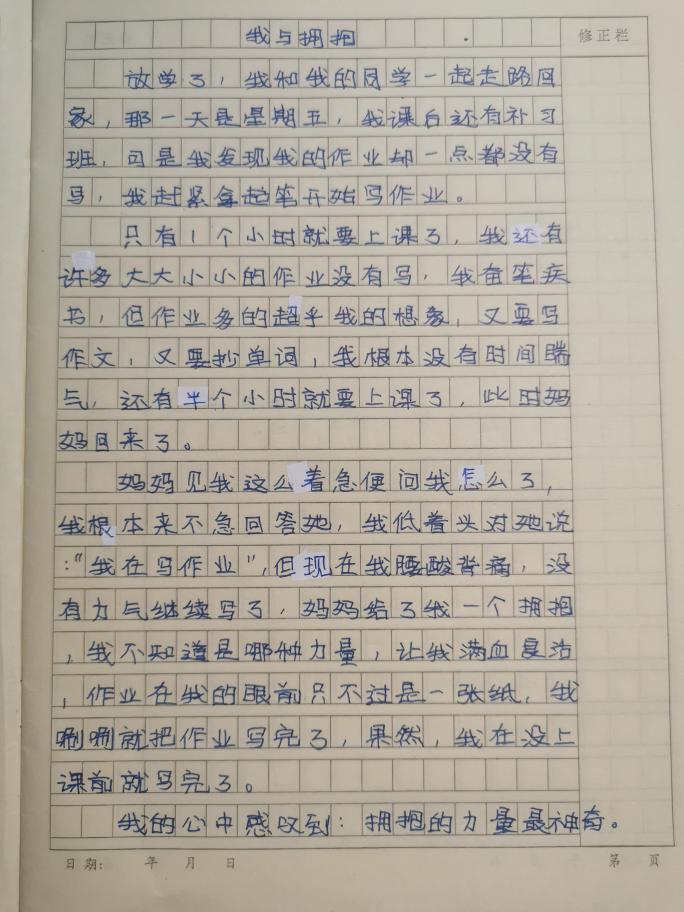 我与拥抱
修正栏
放学了，我和我的同学一起走路回
家，那一天是星期五，我课后还有补习
班，可是我发现我的作业却一点都没有
写，我赶紧拿起笔开始写作业。
只有1个小时就要上课了，我还有
许多大大小小的作业没有写，我奋笔疾
书，但作业多的超乎我的想象，又要写
作文，又要抄单词，我根本没有时间喘
气，还有半个小时就要上课了，此时妈
妈回来了。
妈妈见我这么着急便问我怎么了，
我根本来不急回答她，我低着头对她说
:“我在写作业”,但现在我腰酸背痛，没
有力气继续写了，妈妈给了我一个拥抱
，我不知道是哪种力量，让我满血复活
，作业在我的眼前只不过是一张纸，我
唰唰就把作业写完了，果然，我在没上
课前就写完了。
我的心中感叹到：拥抱的力量最神奇。
日期: 年 月 日 第 页